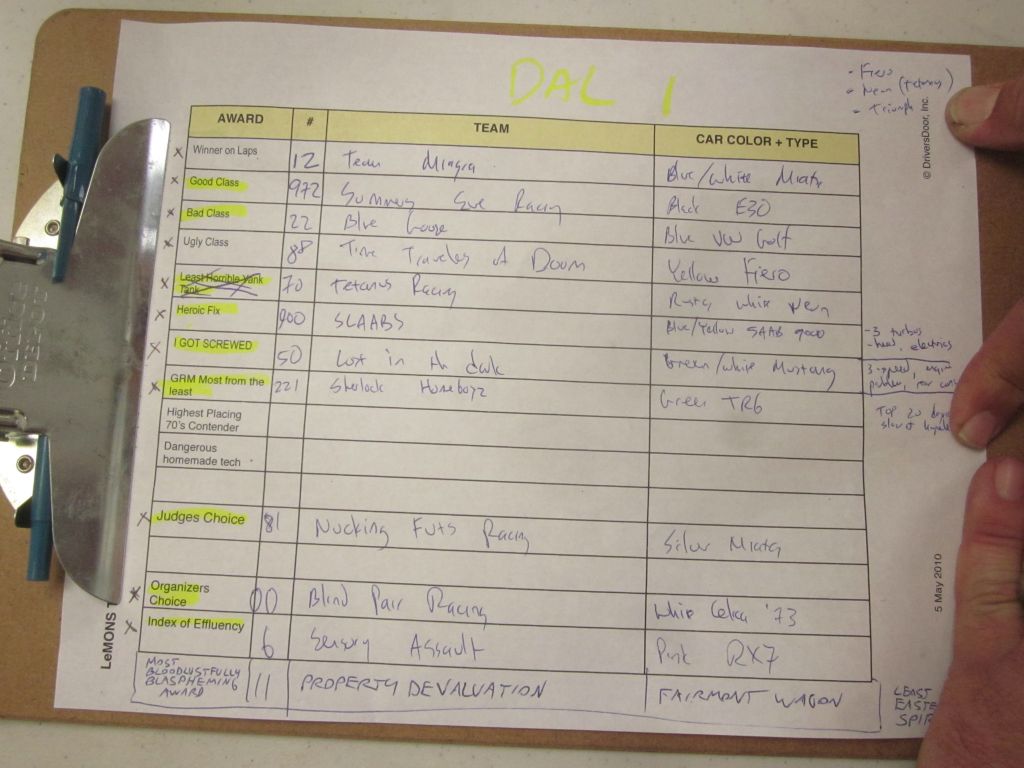 DAL 1
- Fiero
- Neon (tetanus)
- Triumph
© DriversDoor, Inc.
AWARD # TEAM CAR COLOR + TYPE
x Winner on Laps 12 Team Miagra Blue/White Miata
x Good Class 972 Summers Eve Racing Black E30
x Bad Class 22 Blue Goose Blue VW Golf
x Ugly Class 88 Time Travelers of Doom Yellow Fiero
x Least Horrible Yank Tank 70 Tetanus Racing Rusty White Neon
x Heroic Fix 900 SLAABS Blue/Yellow SAAB 9000
- 3 turbos
- head, electrics
x I GOT SCREWED 50 Lost in the dark Green/White Mustang
3-speed, major
x GRM Most from the least 221 Sherlock Homeboyz Green TR6
Top 20
Highest Placing
70's Contender
Dangerous
homemade tech
x Judges Choice 81 Nucking Futs Racing Silver Miata
x Organizers Choice 00 Blind Pair Racing White Celica '73
x Index of Effluency 6 Sensory Assault Pink RX7
MOST
BLOODLUSTFULLY
BLASPHEMING
AWARD 111 PROPERTY DEVALUATION FAIRMONT WAGON
LEAST
5 May 2010
LeMONS